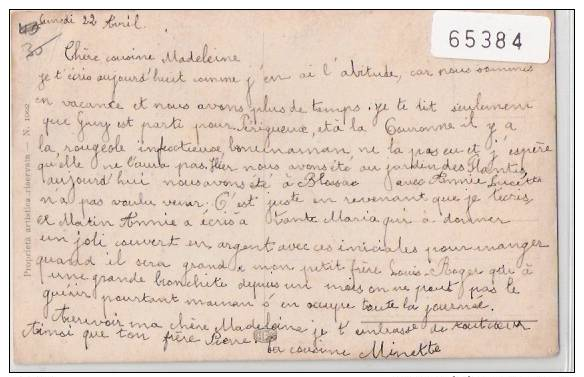 Samedi 22 Avril.
65384
35
Chère cousine Madeleine
je t'écris aujourd'huit comme j'en ai l'abitude, car nous sommes
en vacance et nous avons plus de temps. Je te dit seulement
que Guy est parti pour Périgueux, et à la Couronne il y'a
la rougeole infectieuse, bonnemaman ne la pas eu et j'espère
qu'elle ne l'aura pas. Hier nous avons été au jardin des Plantes
aujourd'hui nous avons été à Blossac avec Annie Lucette
n'a pas voulu venir. C'est juste en revenant que je t'écris,
ce Matin Annie a écris à tante Maria qui à donner
un joli couvert en argent avec ces iniciales pour manger
quand il sera grand a mon petit frère Louis-Roger qui à
une grande bronchite depuis un mois on ne peut pas le
guérir pourtant maman s'en occupe toute la journée.
Aurevoir ma chère Madeleine je t'embrasse de tout cœur
Ainsi que ton frère Pierre. ta cousine Minette
Proprietà artistica riservata — N. 1062